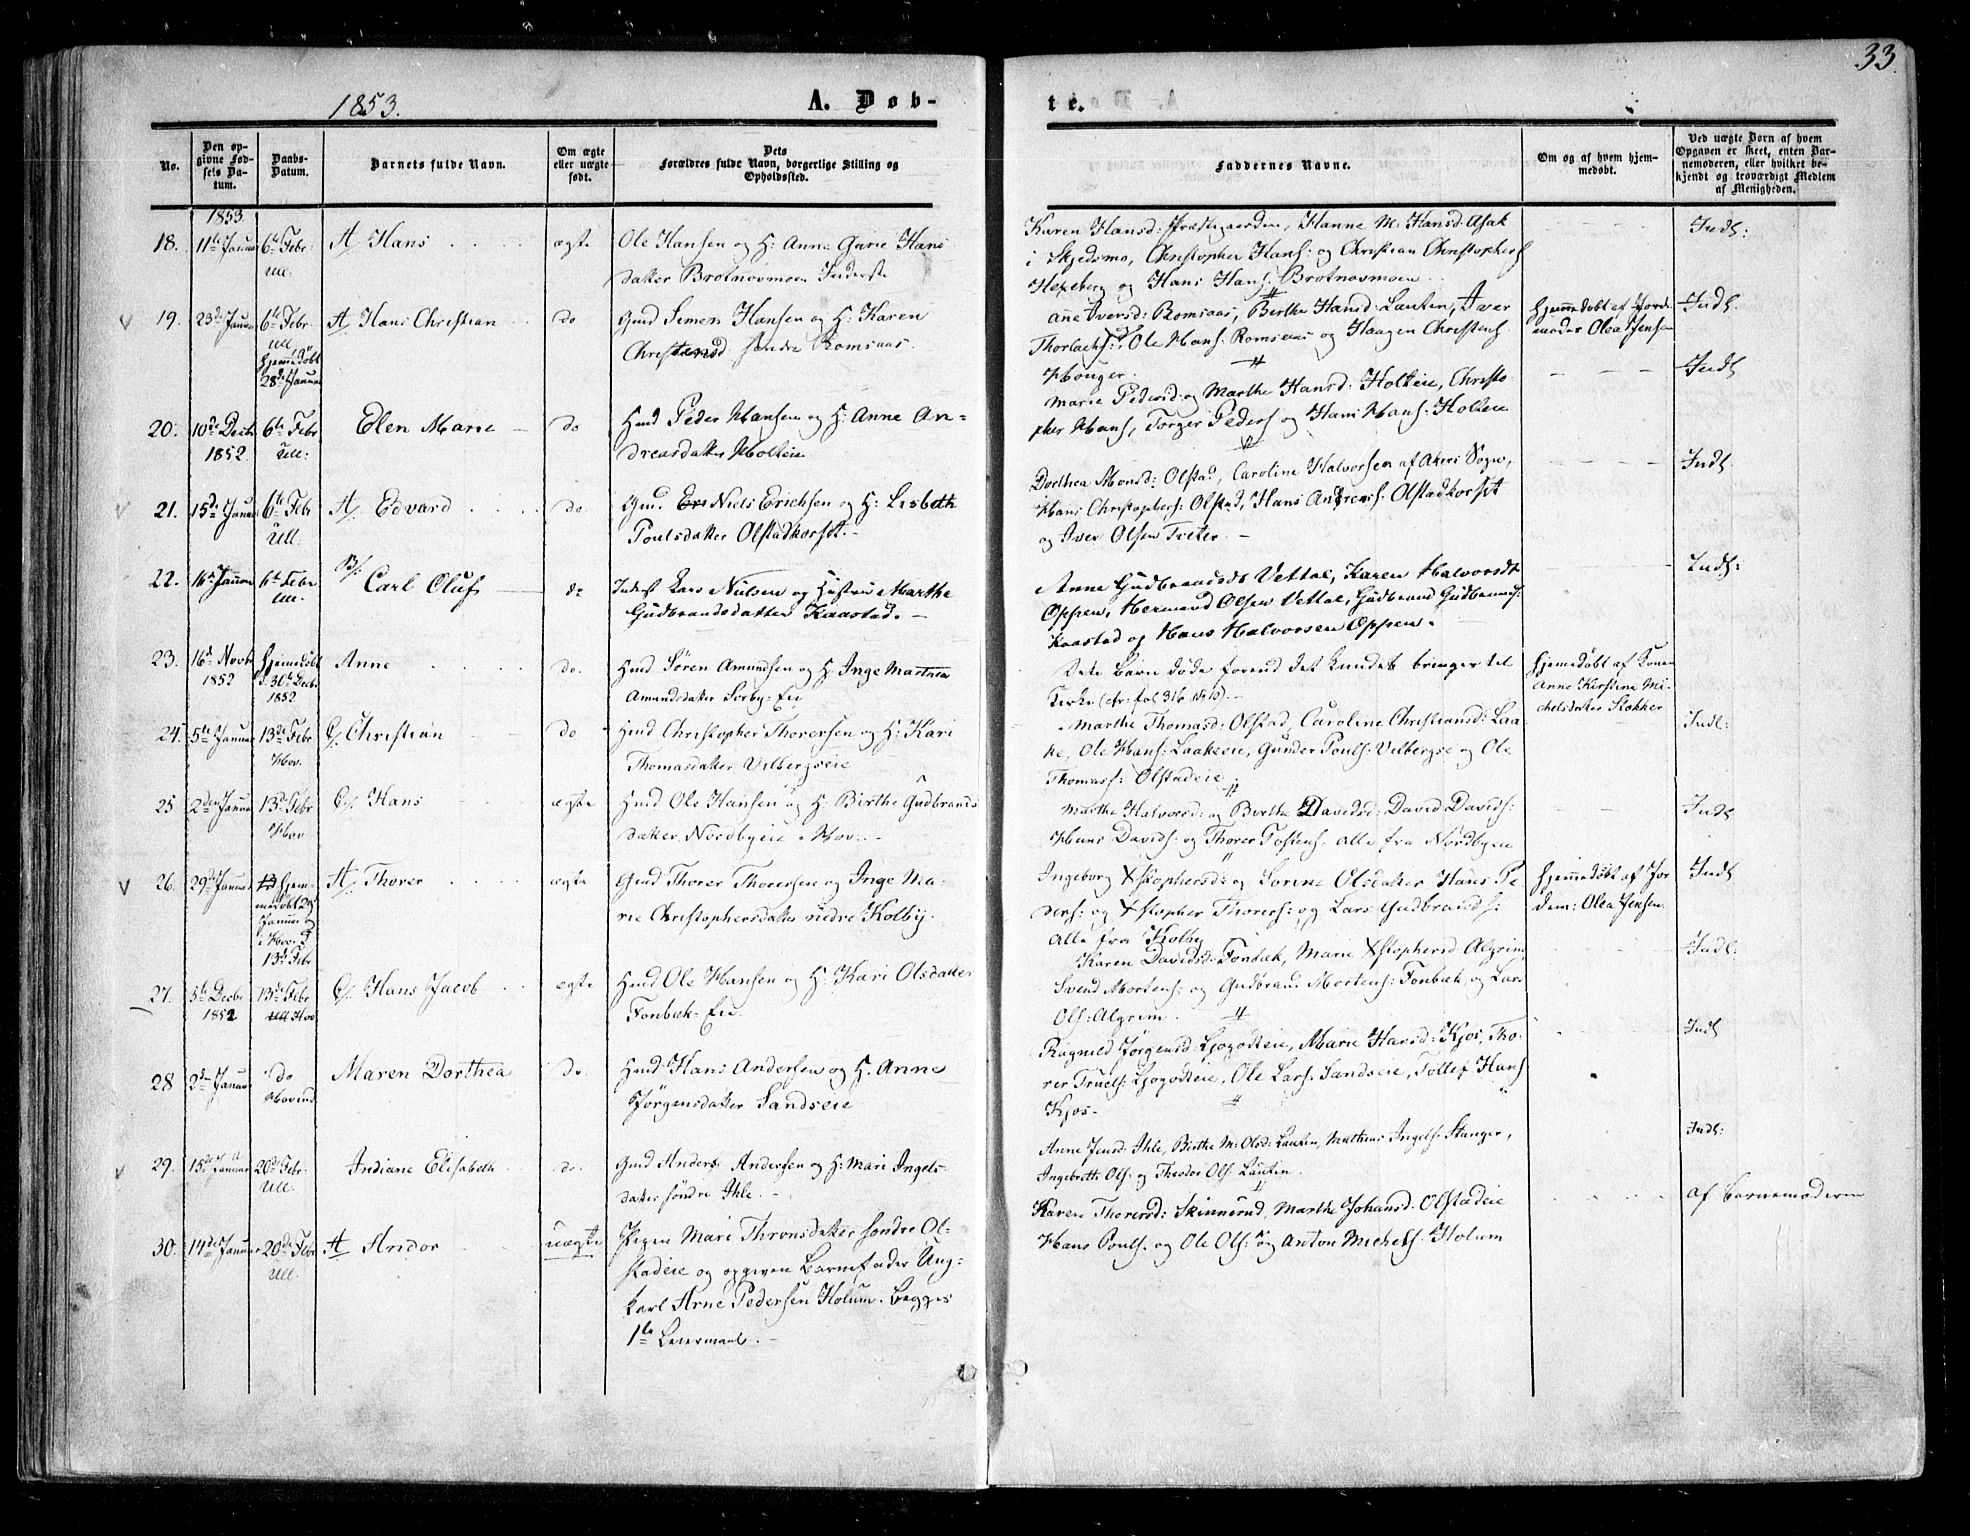 33
1853.
A. Døb-
te.
No.
Den op-
givne Fød-
sels Da-
tum.
Daabs-
Datum.
Barnets fulde Navn.
Om ægte
eller uægte
født.
Dets
Forældres fulde Navn, borgerlige Stilling og
Opholdssted.
Faddernes Navne.
Om og af hvem hjem-
medøbt.
Ved uægte Børn af hvem
Opgaven er skeet, enten Bar-
nemoderen, eller hvilket be-
kjendt og troværdigt Medlem
af Menigheden.
1853
18. 11te Januar 6te Febr Ull. A/ Hans ægte
Ole Hansen og H: Anne Garie Hans
datter Brotnovmoen Inderste
Karen Hansd: Præstegaarden, Hanne M: Hansd: Asak
i Skjedsmo, Christopher Hans: og Christian Christophers
Hexeberg og Hans Hans: Brotnovmoen
Inds:
19. 23de Januar 6te Febr Ull, hjemedøbt 28de Januar A/ Hans Christian do
Gmd Simen Hansen og H: Karen
Christensd. søndre Romsaas.
Anne Iversd: Romsaas, Birthe Hansd: Lautin, Iver
Thorlachs:, Ole Hans: Romsaas og Haagen Christens
Houger.
hjemmedøbt af Jorde
moder Olea Jensen
Inds.
20. 10de Decbr 1852. 6te Febr Ull: Elen Marie do
Hmd Peder Hansen og H: Anne An-
dreasdatter Holteie
Marie Pedersd: og Marthe Hansd: Holteie, Christo-
pher Hans, Torger Peders og Hans Hans: Holteie
Inds
21. 15de Januar 6te Febr Ull. A/ Edvard do.
Gmd. Niels Erichsen og H: Lisbeth
Poulsdatter Olstadkorset.
Dorthea Monsd: Olstad, Caroline Halvorsen af Akers Sogn,
Hans Christophers: Olstad, Hans Andreas: Olstadkorset
og Iver Olsen Træter.
Inds.
22. 16de Januar 6te Febr Ull B/: Carl Oluf do
Inderst Lars Nielsen og Hustru Marthe
Gudbrandsdatter Kaastad.
Anne Gudbrandsdt Vettal, Karen Halvorsdt
Oppen, Hermand Olsen Vettal, Gudbrand Gudbrands:
Kaastad og Hans Halvorsen Oppen.
Inds:
23. 16de Novbr 1852 hjemedøbt d: 30te Decbr 1852 Anne do.
Hmd Sören Amundsen og H: Inge Marthea
Amundsdatter Sorby-Eie
Dete Barn døde forend det kundet bringes til
Kirke (cfr: fol 316 No 10).
hjemedøbt af Konen
Anne Kirstine Mi-
chelsdatter Slokker
24. 5te Januar 13de Febr Hov. C/. Christian do
Hmd Christopher Thorersen og H: Kari
Thomasdatter Vilbergseie
Marthe Thomasd: Olstad, Caroline Christiansd: Laa-
ke, Ole Hans: Laakeeie, Gunder Pouls: Vilbergse og Ole
Thomass: Olstadeie
Inds:
25 2den Januar 13de Febr Hov C/. Hans ægte
Hmd Ole Hansen og H: Birthe Gudbrands
datter Nordbyeie Hov.
Marthe Halvorsd: og Berthe Davidsd: David Davids:
Hans Davids: og Thorer Tostens: alle fra Nordbyen
Inds
26. 29de Januar hjem- medøbt 29 Januar og i Hov. d 13de Febr A/ Thorer ægte
Gmd Thorer Thorersen og Inge Ma-
rie Christophersdatter nedre Kolby.
Ingeborg Xstophersd: og Sorine Olsdatter Hans Pe
ders: og Xstopher Thorers: og Lars Gudbrands:
Alle fra Kolby
hjemmedøbt af Jor
dem: Olea Jensen
Inds
27. 5te Decbr 1852 13de Febr Ull Hov C/. Hans Jacob ægte
Hmd Ole Hansen og H: Kari Olsdatter
Fonbæk-Eie
Karen Davidsd: Fonbæk, Marie Xstophersd Algrim
Svend Mortens: og Gudbrand Mortens: Fonbæk og Lars
Ols: Algrim.
Inds:
28 2den Januar do Hovind Maren Dorthea do.
Hmd Hans Andersen og H. Anne
Jörgensdatter Sandseie
Ragnild Jörgensd: Ljøgodteie, Marie Hansd: Kjos, Tho-
rer Truels: Ljøgodteie, Ole Lars: Sandseie, Tollef Hans
Kjos.
Inds
29. 15de Januar 20de Febr: Ull. Indiane Elisabeth do.
Gmd Anders Andersen og H: Mari Ingels-
datter söndre Ihle.
Anne Jensd: Ihle, Birthe M: Olsd: Lautin, Mathias Ingels: Stanger,
Ingebreth Ols: og Theodor Ols: Lautin.
Inds:
30. 14de Januar 20de Febr Ull. A/ Andor uægte
Pigen Mari Thronsdatter søndre Ol-
stadeie og opgiven Barnefader Ung-
karl Arne Pedersen Holum. Begges
1ste Leiermaal.
Karen Thorersd: Skinnerud, Marthe Johansd. Olstadeie
Hans Pouls: og Ole Ols: og Anton Michels. Holum
af Barnemoderen